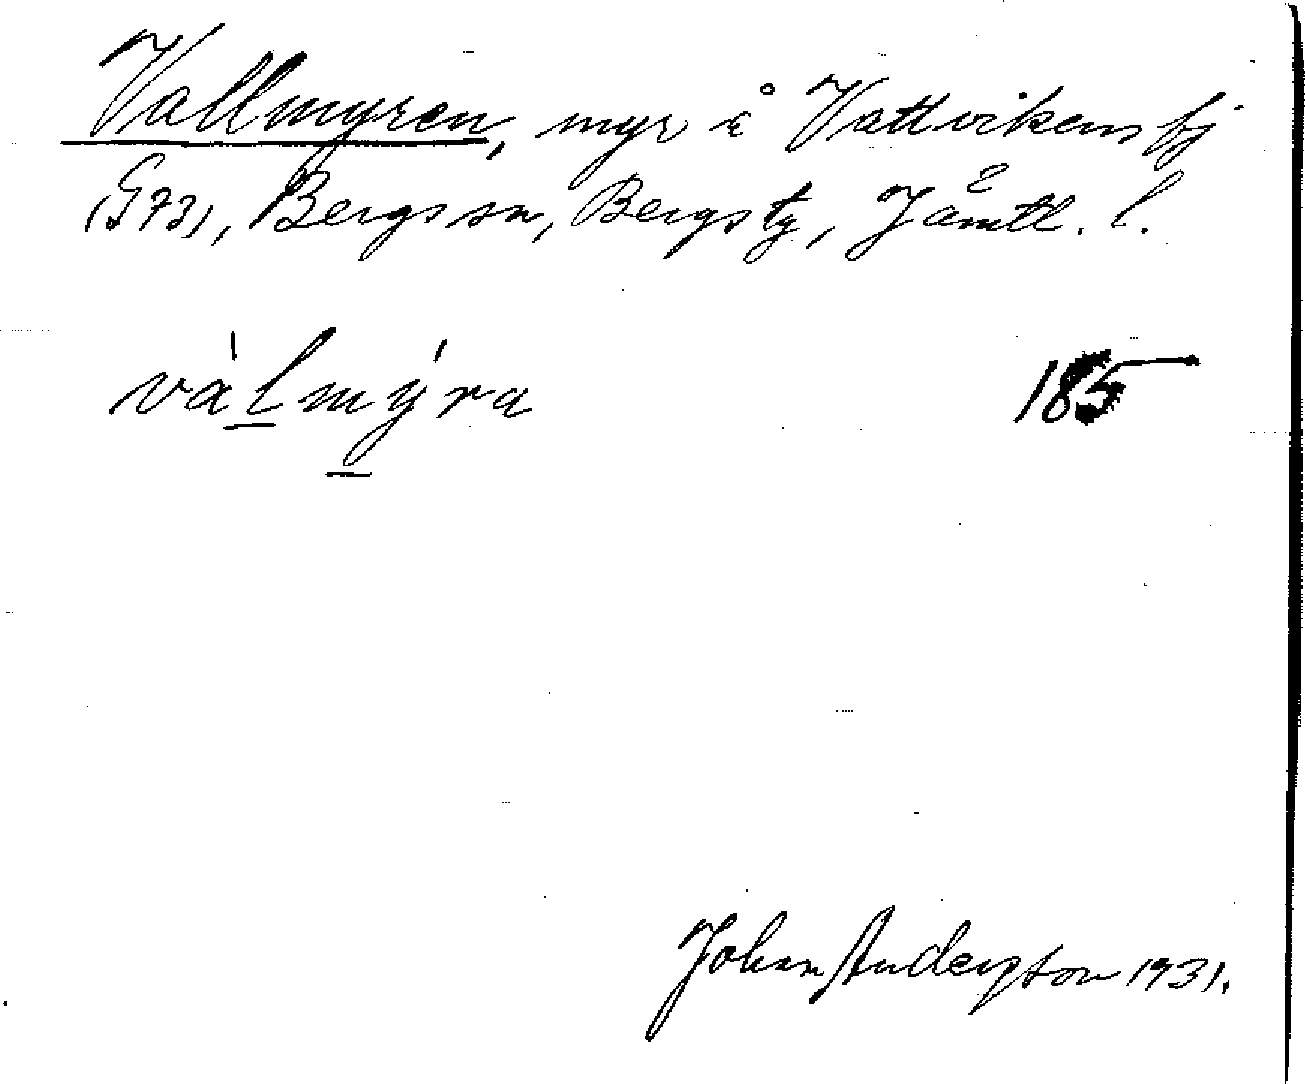 Vallmyren, myr å Vattvikens bj
(G73), Bergs sn, Bergs tg, Jämtl. l.
vàlmýra 185
Johan Anderson 1931.